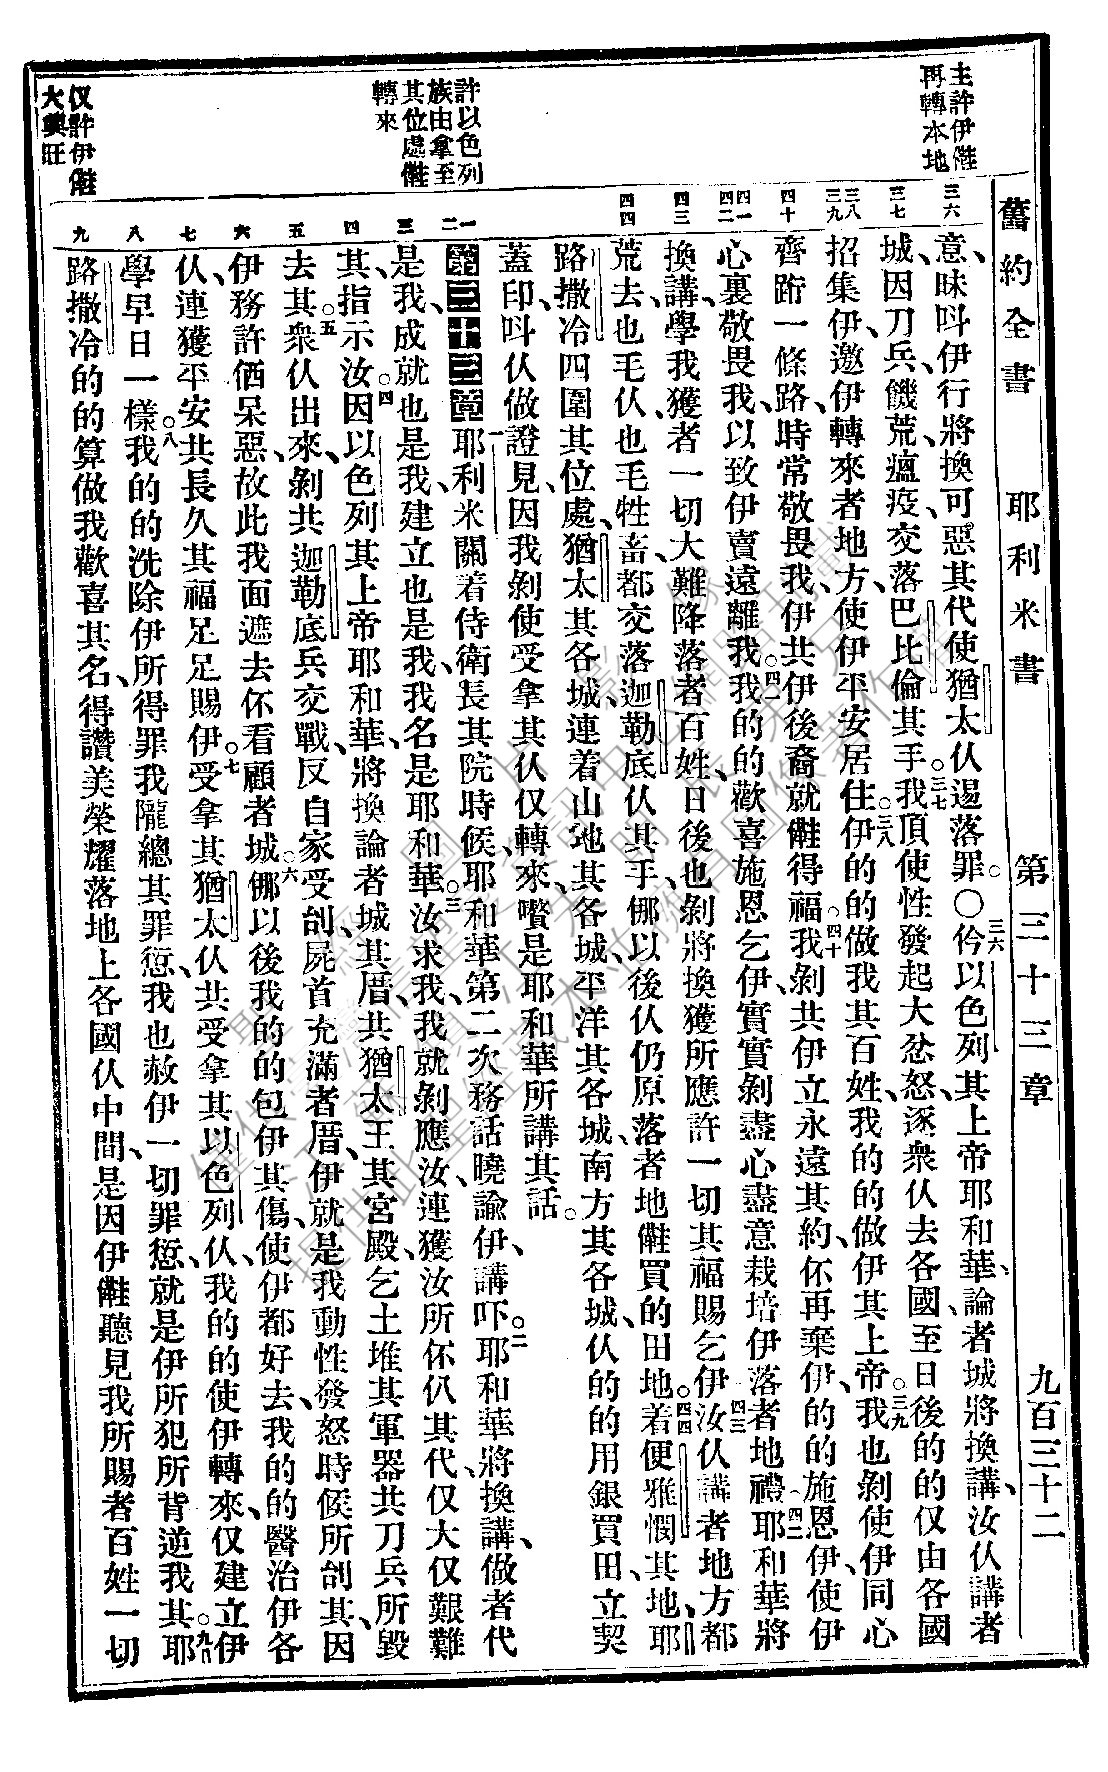 舊約全書　耶利米書　第三十三章　九百三十二
主許伊㒰
再轉本地
許以色列
族由拿至
其位處㒰
轉來
仅許伊㒰
大興旺
三六
三七
三八
三九
四十
四一
四二
四三
四四
一
二
三
四
五
六
七
八
九
意、昧呌伊行將換可惡其代使猶太仈遏落罪。〇三六仱以色列其上帝耶和華、論者城將換講、汝仈講者
城、因刀兵饑荒瘟疫、交落巴比倫其手。三七我頂使性發起大忿怒、逐衆仈去各國、至日後的的仅由各國
招集伊、邀伊轉來者地方、使伊平安居住。三八伊的的做我其百姓、我的的做伊其上帝。三九我也剝使伊同心
齊跡一條路、時常敬畏我、伊共伊後裔就㒰得福。四十我剝共伊立永遠其約、伓再棄伊、的的施恩伊、使伊
心裏敬畏我、以致伊賣遠離我。四一我的的歡喜施恩乞伊、實實剝盡心盡意栽培伊落者地禮。四二耶和華將
換講、學我獲者一切大難降落者百姓、日後也剝將換獲所應許一切其福賜乞伊。四三汝仈講者地方都
荒去、也毛仈也毛牲畜、都交落迦勒底仈其手、㑚以後仈仍原落者地㒰買的田地。四四着便雅憫其地、耶
路撒冷四圍其位處、猶太其各城、連着山地其各城、平洋其各城、南方其各城、仈的的用銀買田、立契
蓋印、呌仈做證見、因我剝使受拿其仈仅轉來、嚽是耶和華所講其話。
第三十三章　一耶利米關着侍衛長其院時候、耶和華第二次務話曉諭伊、講吓。二耶和華、將換講、做者代
是我、成就也是我、建立也是我、我名是耶和華。三汝求我、我就剝應汝、連獲汝所伓仈其代、仅大仅艱難
其、指示汝。四因以色列其上帝耶和華、將換論者城其厝、共猶太王其宮殿、乞土堆其軍器共刀兵所毀
去其。五衆仈出來、剝共迦勒底兵交戰、反自家受刣、屍首充滿者厝、伊就是我動性發怒時候所刣其、因
伊務許偤呆惡、故此我面遮去、伓看顧者城。六㑚以後我的的包伊其傷、使伊都好去、我的的醫治伊各
仈、連獲平安共長久其福、足足賜伊。七受拿其猶太仈、共受拿其以色列仈、我的的使伊轉來、仅建立伊
學早日一樣。八我的的洗除伊所得罪我隴總其罪愆、我也赦伊一切罪愆、就是伊所犯所背逆我其。九耶
路撒冷的的算做我歡喜其名、得讚美榮耀落地上各國仈中間、是因伊㒰聽見我所賜者百姓一切